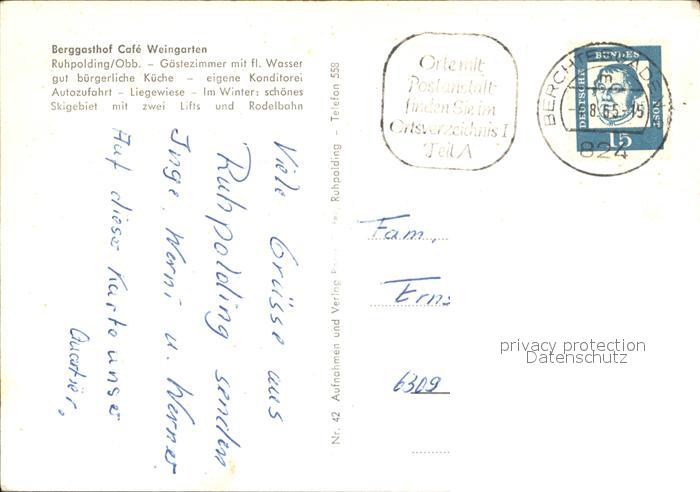 Berggasthof Café Weingarten
Ruhpolding/Obb. – Gästezimmer mit fl. Wasser
gut bürgerliche Küche – eigene Konditorei
Autozufahrt – Liegewiese – Im Winter: schönes
Skigebiet mit zwei Lifts und Rodelbahn
Viele Grüsse aus
Ruhpolding senden
Inge, Werni u. Werner
Auf dieser Karte unser
Quartier.
Nr. 42 Aufnahmen und Verlag Ruhpolding – Telefon 558
Orte mit
Postanstalt
finden Sie im
Ortsverzeichnis I
Teil A
BERCHTESGADEN
8.65-15
824
DEUTSCHE BUNDESPOST
15
Fam.
Ern
6309
privacy protection
Datenschutz